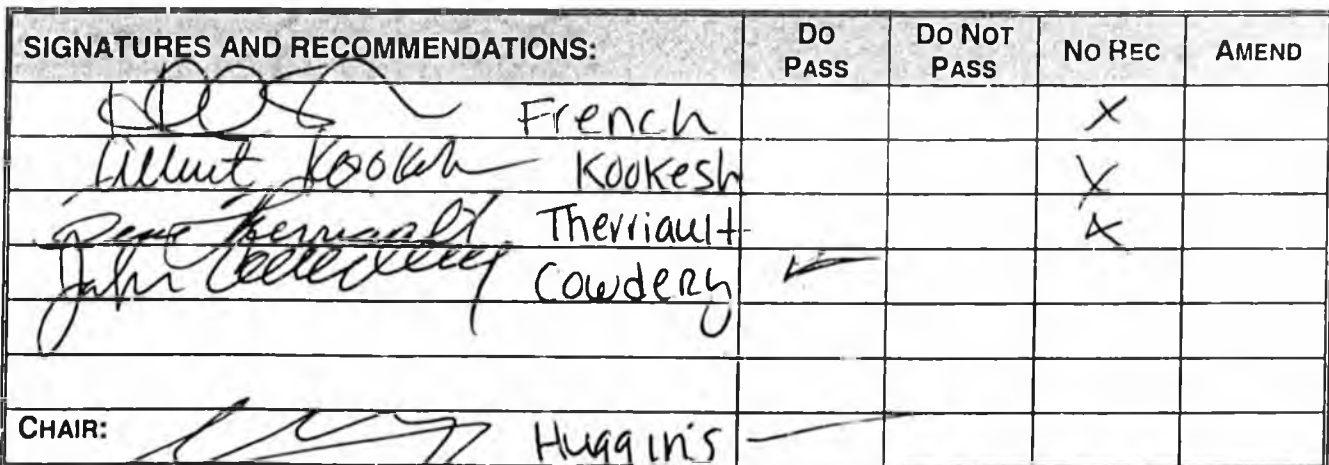 SIGNATURES AND RECOMMENDATIONS: DO PASS DO NOT PASS NO REC AMEND
French X
Albert Kookesh Kookesh X
Gene Therriault Therriault X
John Cowdery Cowdery ✓
CHAIR: Huggins